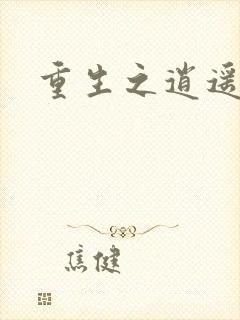 重生之逍遥
焦健